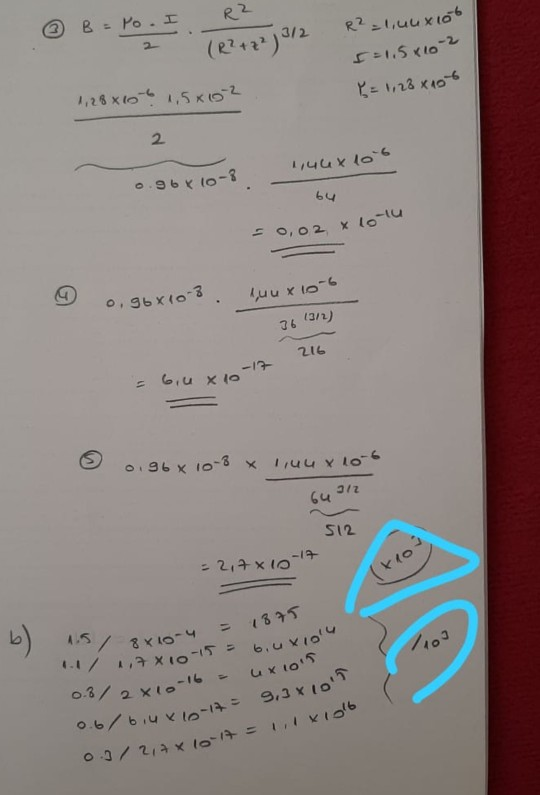 ③ B = μ₀ · I / 2 · R² / (R² + z²)^3/2
R² = 1,44 × 10⁻⁶
I = 1,5 × 10⁻²
μ₀ = 1,28 × 10⁻⁶
1,28 × 10⁻⁶ · 1,5 × 10⁻² / 2
0.96 × 10⁻⁸ · 1,44 × 10⁻⁶ / 64
= 0,02 × 10⁻¹⁴
④ 0,96 × 10⁻⁸ · 1,44 × 10⁻⁶ / 36^(3/2)
216
= 6,4 × 10⁻¹⁷
⑤ 0.96 × 10⁻⁸ × 1,44 × 10⁻⁶ / 64^3/2
512
= 2,7 × 10⁻¹⁷
(× 10³)
b) 1.5 / 8 × 10⁻⁴ = 1875
1.1 / 1,7 × 10⁻¹⁵ = 6,4 × 10¹⁴
0.8 / 2 × 10⁻¹⁶ = 4 × 10¹⁵
/10³
0.6 / 6,4 × 10⁻¹⁷ = 9,3 × 10¹⁵
0.3 / 2,7 × 10⁻¹⁷ = 1,1 × 10¹⁶